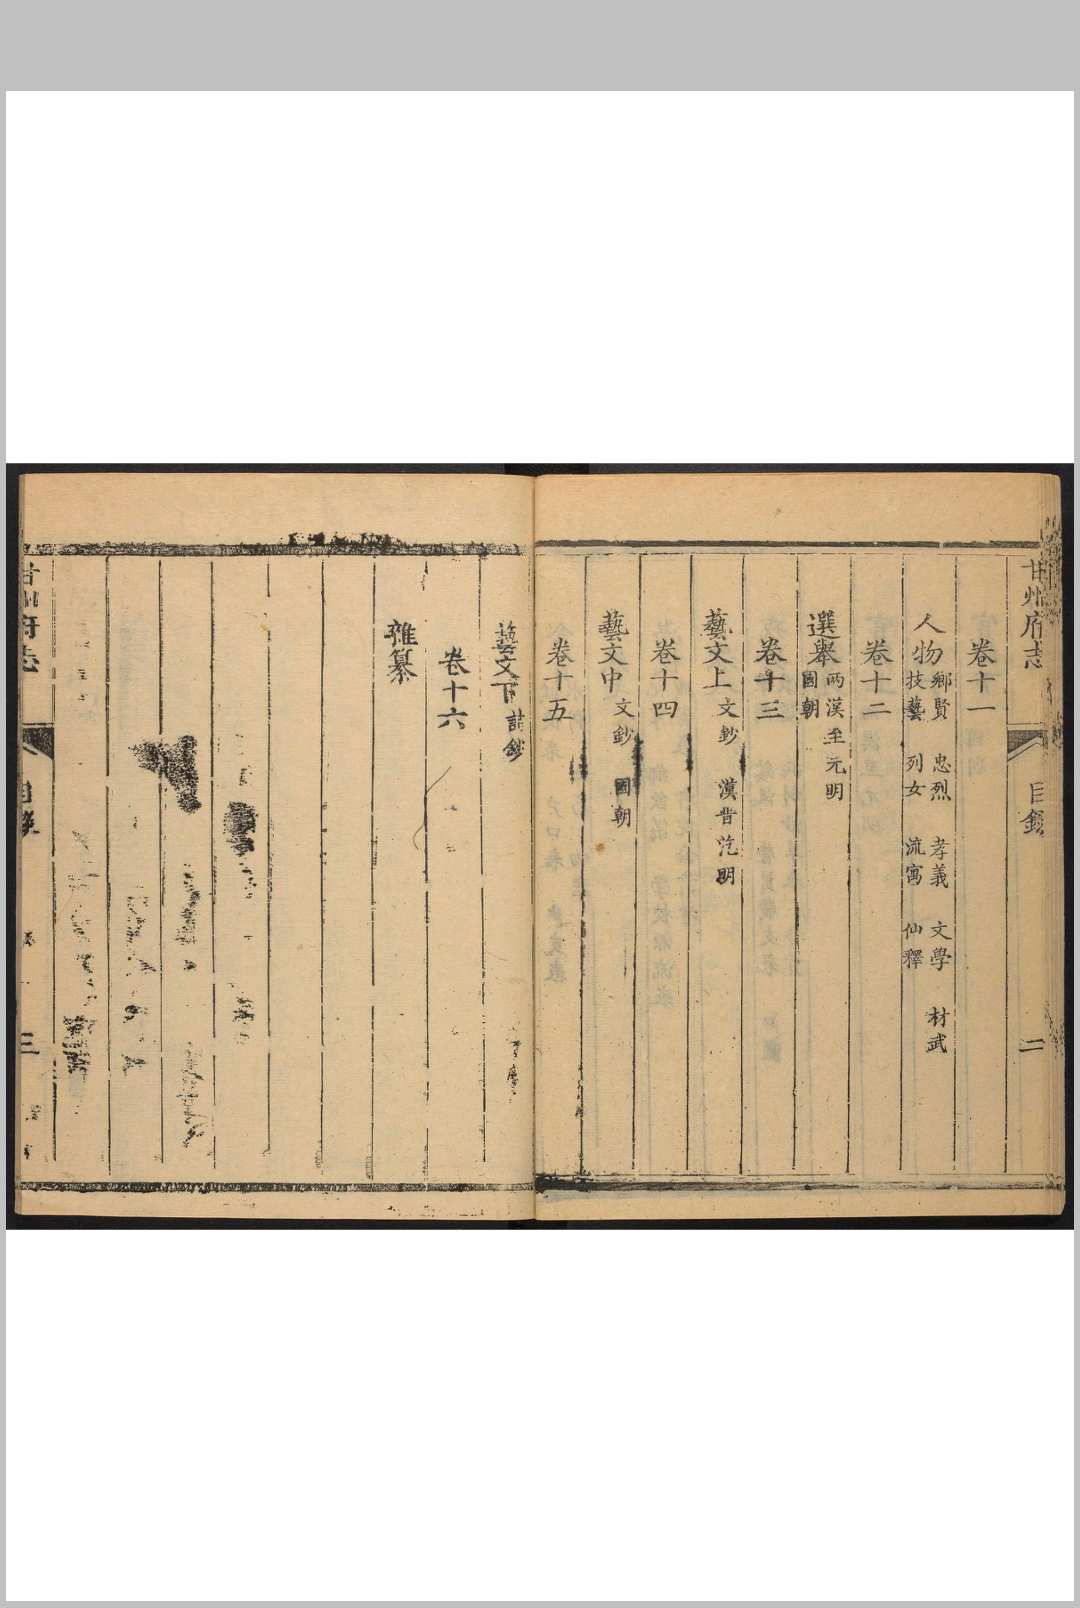 甘州府志
目錄
二
卷十一
人物 鄉賢 忠烈 孝義 文學 材武
技藝 列女 流寓 仙釋
卷十二
選舉 兩漢至元明
國朝
卷十三
藝文上 文鈔 漢晉 明
卷十四
藝文中 文鈔 國朝
卷十五
藝文下 詩鈔
卷十六
雜纂
甘州府志
目錄
三